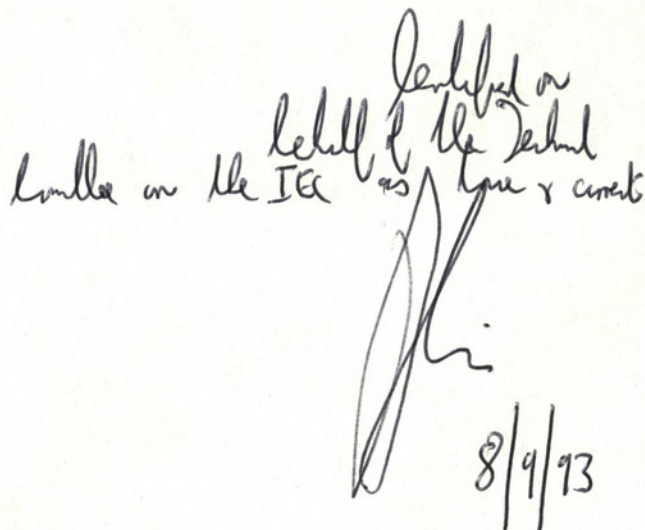 Certified on
behalf of the Technical
Committee on the IEC as true & correct
8/9/93